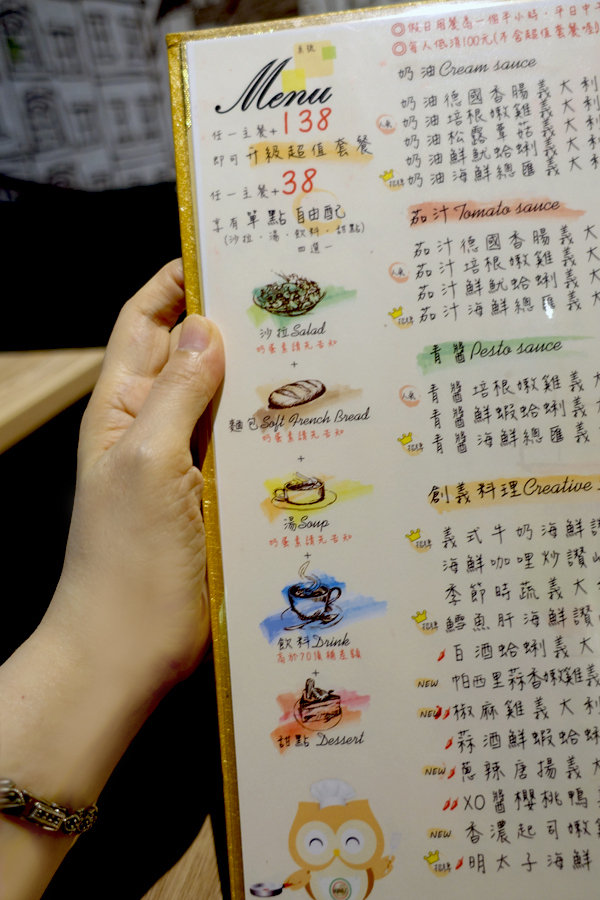 Menu
任一主餐+138
即可升級超值套餐
任一主餐+38
享有單點自由配
(沙拉・湯・飲料・甜點)
四選一
沙拉Salad
奶蛋素請先告知
+
麵包Soft French Bread
奶蛋素請先告知
+
湯Soup
奶蛋素請先告知
+
飲料Drink
高於70須補差額
+
甜點 Dessert
◎假日用餐為一個半小時、平日中
◎每人低消100元(不含超值套餐
奶油Cream sauce
奶油德國香腸義大利
人氣 奶油培根嫩雞義大利
奶油松露蕈菇義大利
奶油鮮魷蛤蜊義大利
招牌 奶油海鮮總匯義大利
茄汁Tomato sauce
茄汁德國香腸義大
人氣 茄汁培根嫩雞義大
茄汁鮮魷蛤蜊義大
招牌 茄汁海鮮總匯義大
青醬Pesto sauce
人氣 青醬培根嫩雞義
青醬鮮蝦蛤蜊義大
招牌 青醬海鮮總匯義
創義料理Creative
招牌 義式牛奶海鮮讚
海鮮咖哩炒讚
季節時蔬義大
招牌 鱈魚肝海鮮讚
白酒蛤蜊義大
NEW 帕西里蒜香嫩雞義
NEW 椒麻雞義大利
蒜酒鮮蝦蛤蜊
NEW 蔥辣唐揚義大
XO醬櫻桃鴨
NEW 香濃起司嫩雞
招牌 明太子海鮮